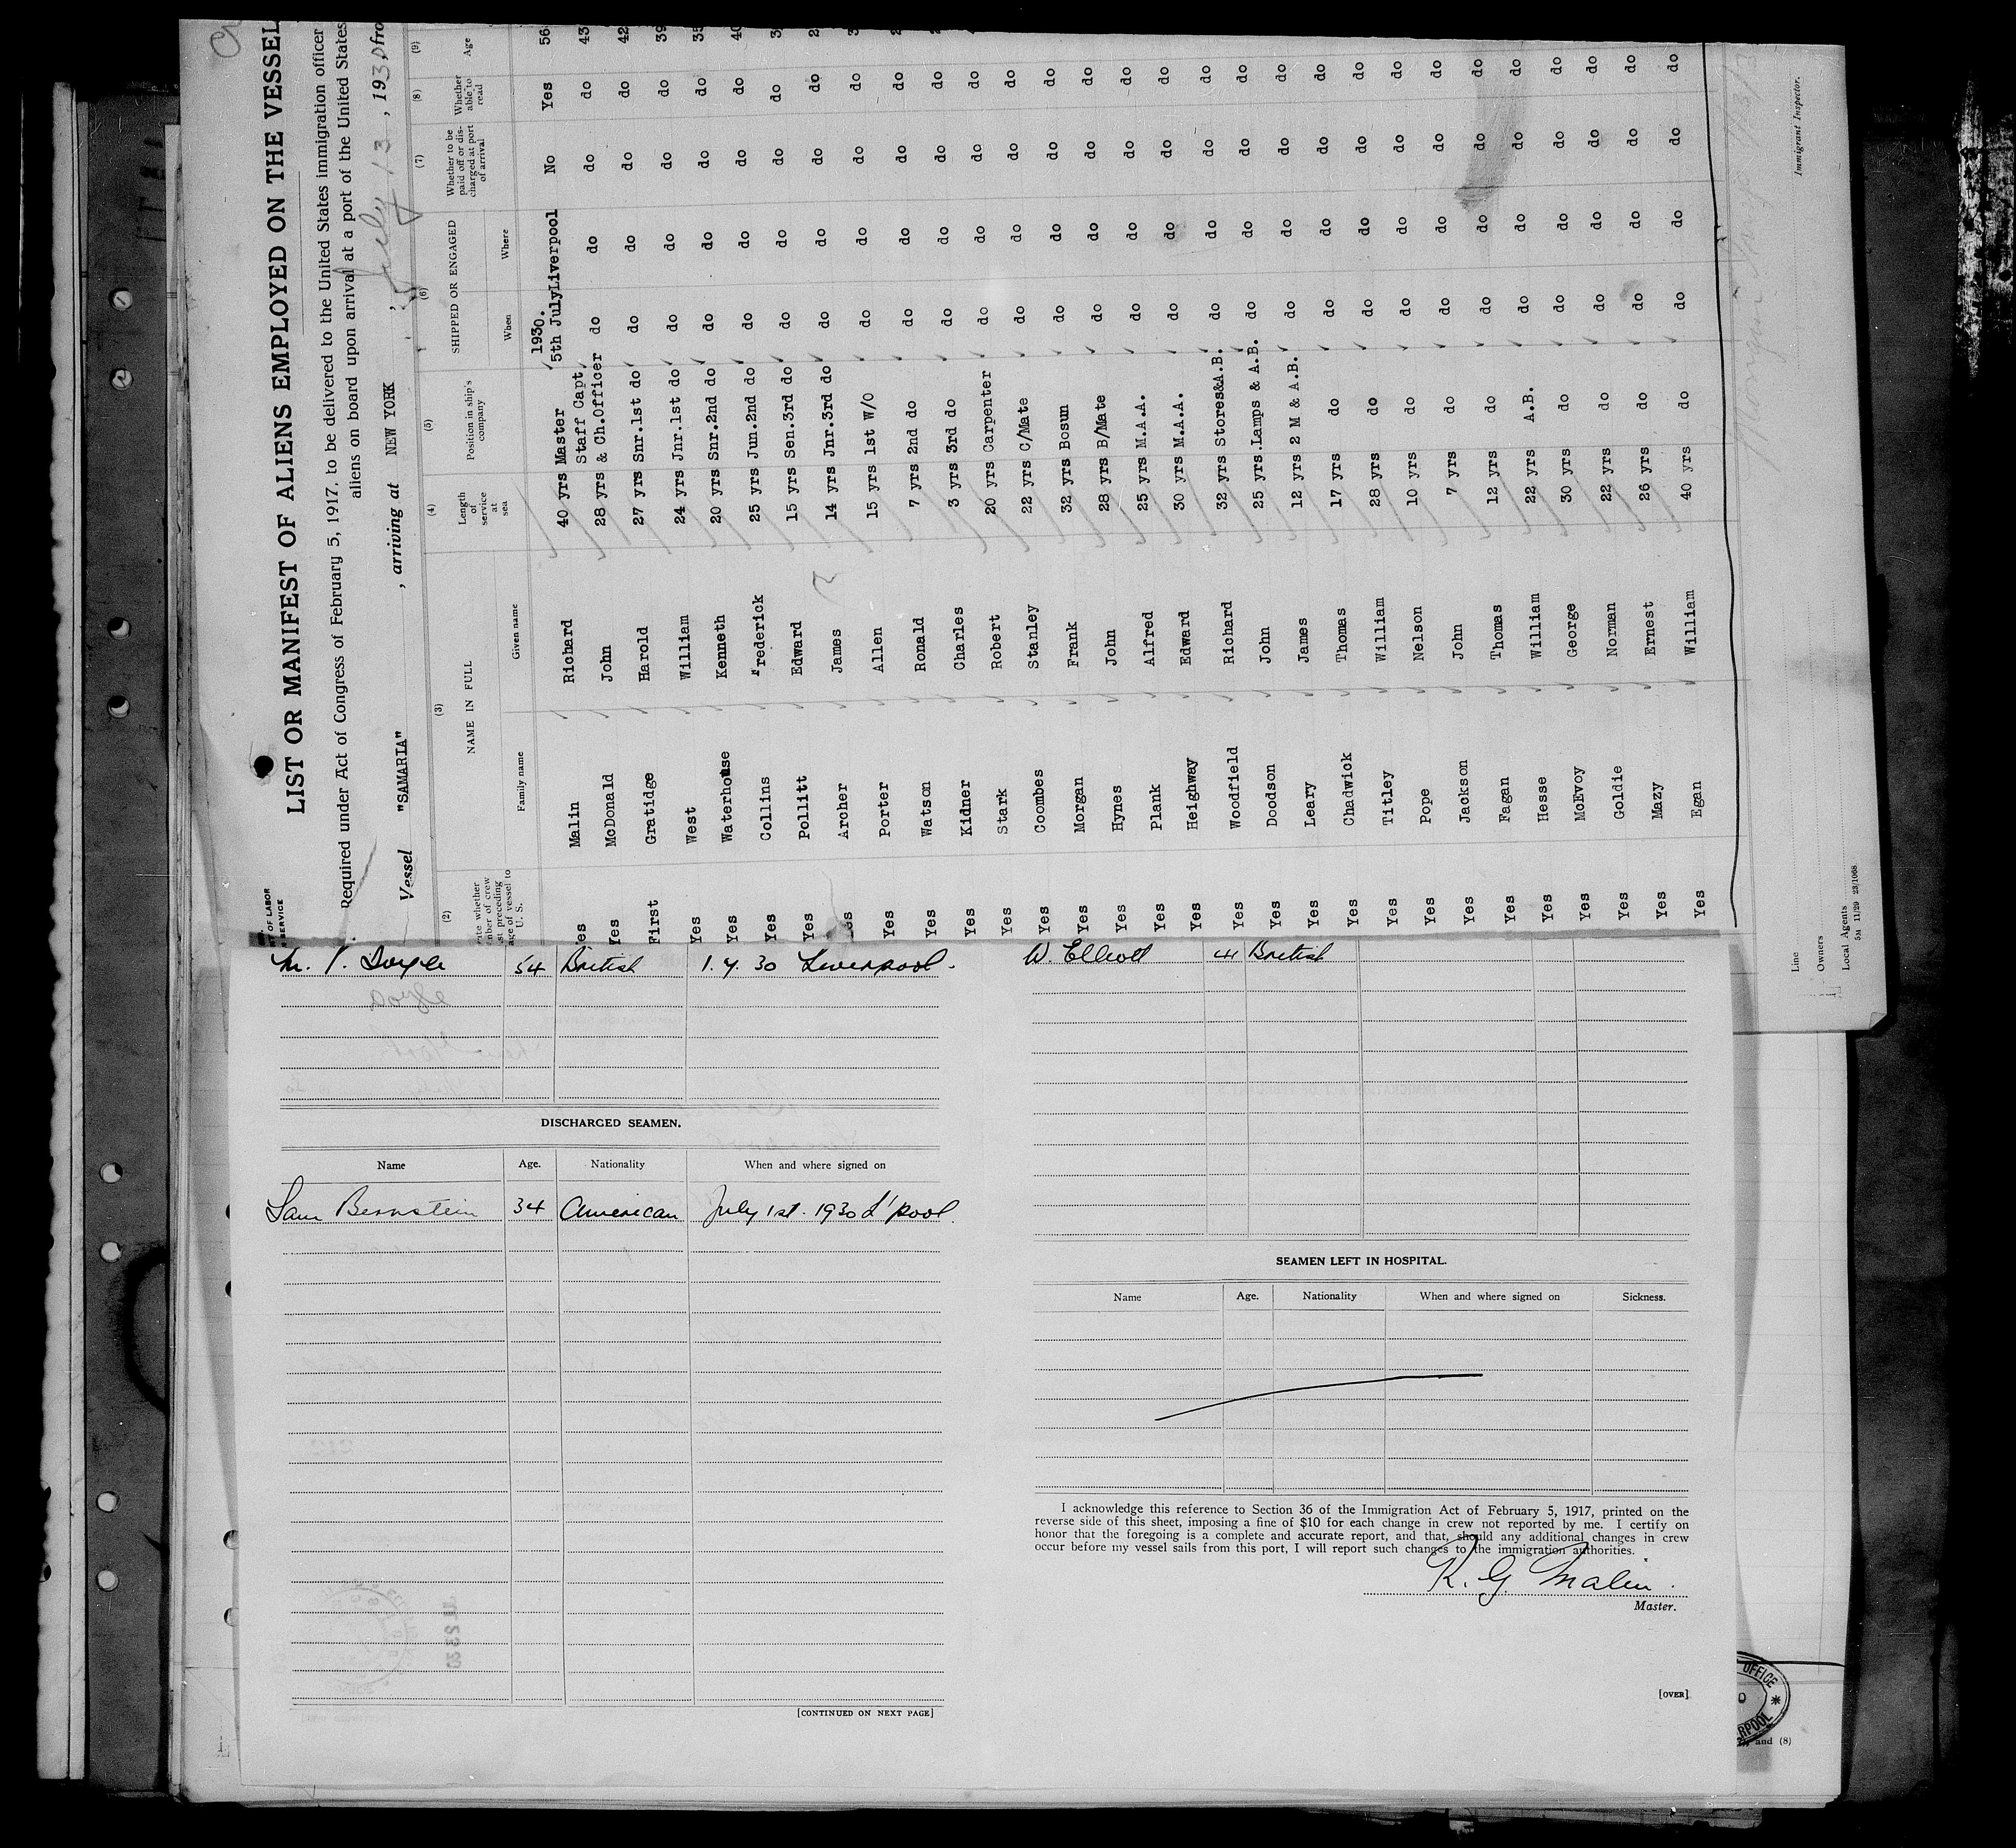 LIST OR MANIFEST OF ALIENS EMPLOYED ON THE VESSEL
Required under Act of Congress of February 5, 1917, to be delivered to the United States immigration officer
aliens on board upon arrival at a port of the United States
Vessel "SAMARIA" , arriving at NEW YORK , July 13 , 1930, fro
(2) (3) (4) (5) (6) (7) (8) (9)
NAME IN FULL
Family name Given name
Length of service at sea
Position in ship's company
SHIPPED OR ENGAGED
When Where
Whether to be paid off or discharged at port of arrival
Whether able to read
Age
U. S.
1930.
Malin Richard 40 yrs Master 5th July Liverpool No Yes 56
Yes McDonald John 28 yrs Staff Capt. & Ch.Officer do do do do 43
First Gratidge Harold 27 yrs Snr.1st do do do do do 42
Yes West William 24 yrs Jnr.1st do do do do do 39
Yes Waterhouse Kenneth 20 yrs Snr.2nd do do do do do 35
Yes Collins Frederick 25 yrs Jun.2nd do do do do do
Yes Pollitt Edward 15 yrs Sen.3rd do do do do do
Archer James 14 yrs Jnr.3rd do do do do do
Yes Porter Allen 15 yrs 1st W/O do do do do
Yes Watson Ronald 7 yrs 2nd do do do do do
Yes Kidner Charles 3 yrs 3rd do do do do do
Yes Stark Robert 20 yrs Carpenter do do do do
Yes Coombes Stanley 22 yrs C/Mate do do do do
Yes Morgan Frank 32 yrs Bosun do do do do
Yes Hynes John 28 yrs B/Mate do do do do
Yes Plank Alfred 25 yrs M.A.A. do do do do
Yes Heighway Edward 30 yrs M.A.A. do do do do
Yes Woodfield Richard 32 yrs Stores&A.B. do do do do
Yes Doodson John 25 yrs.Lamps & A.B. do do do do
Yes Leary James 12 yrs 2 M & A.B. do do do do
Yes Chadwick Thomas 17 yrs do do do do do
Yes Titley William 28 yrs do do do do do
Yes Pope Nelson 10 yrs do do do do do
Yes Jackson John 7 yrs do do do do do
Yes Fagan Thomas 12 yrs do do do do do
Yes Hesse William 22 yrs A.B. do do do do
Yes McEvoy George 30 yrs do do do do do
Yes Goldie Norman 22 yrs do do do do do
Yes Mazy Ernest 26 yrs do do do do do
Yes Egan William 40 yrs do do do do do
Immigrant Inspector.
Line
Owners
Local Agents
5M 11/29 23/1068
54 British 1. 7. 30 Liverpool.
Doyle
DISCHARGED SEAMEN.
Name Age. Nationality When and where signed on
Sam Bernstein 34 American July 1st. 1930 L'pool.
[CONTINUED ON NEXT PAGE]
W. Elliott 41 British
SEAMEN LEFT IN HOSPITAL.
Name Age. Nationality When and where signed on Sickness.
I acknowledge this reference to Section 36 of the Immigration Act of February 5, 1917, printed on the
reverse side of this sheet, imposing a fine of $10 for each change in crew not reported by me. I certify on
honor that the foregoing is a complete and accurate report, and that, should any additional changes in crew
occur before my vessel sails from this port, I will report such changes to the immigration authorities.
R. G. Malin.
Master.
[OVER]
OFFICE
RPOOL
and (8)